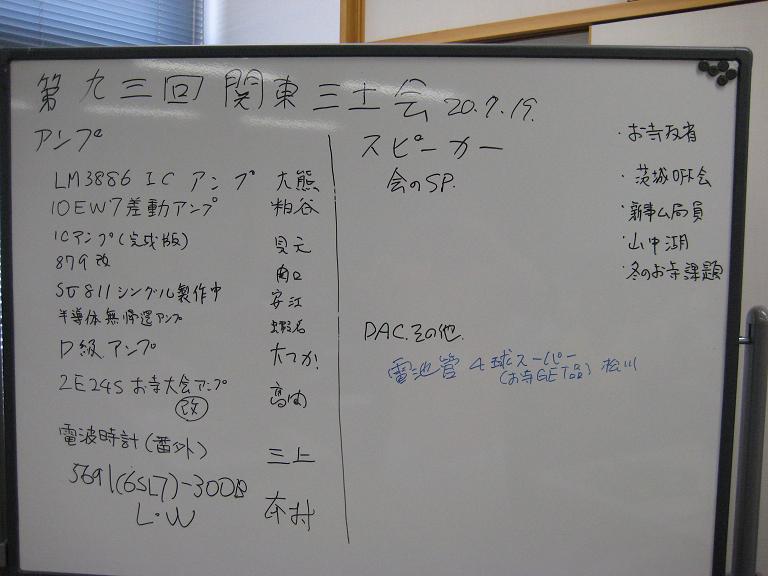 第九三回 関東三土会 20.7.19.
アンプ
LM3886 IC アンプ 大熊
10EW7差動アンプ 粕谷
ICアンプ(完成版)
879改
シングル製作中 安江
半導体無帰還アンプ 蝦名
D級アンプ 大つか
2E24S お寺大会アンプ
改
電波時計(番外) 三上
5691(6SL7)-300B
L・W 本村
スピーカー
会のSP.
DAC.その他.
電池管 4球スーパー
(お寺GET品) 松川
・お寺反省
・茨城OFF会
・新事ム局員
・山中湖
・冬のお寺課題